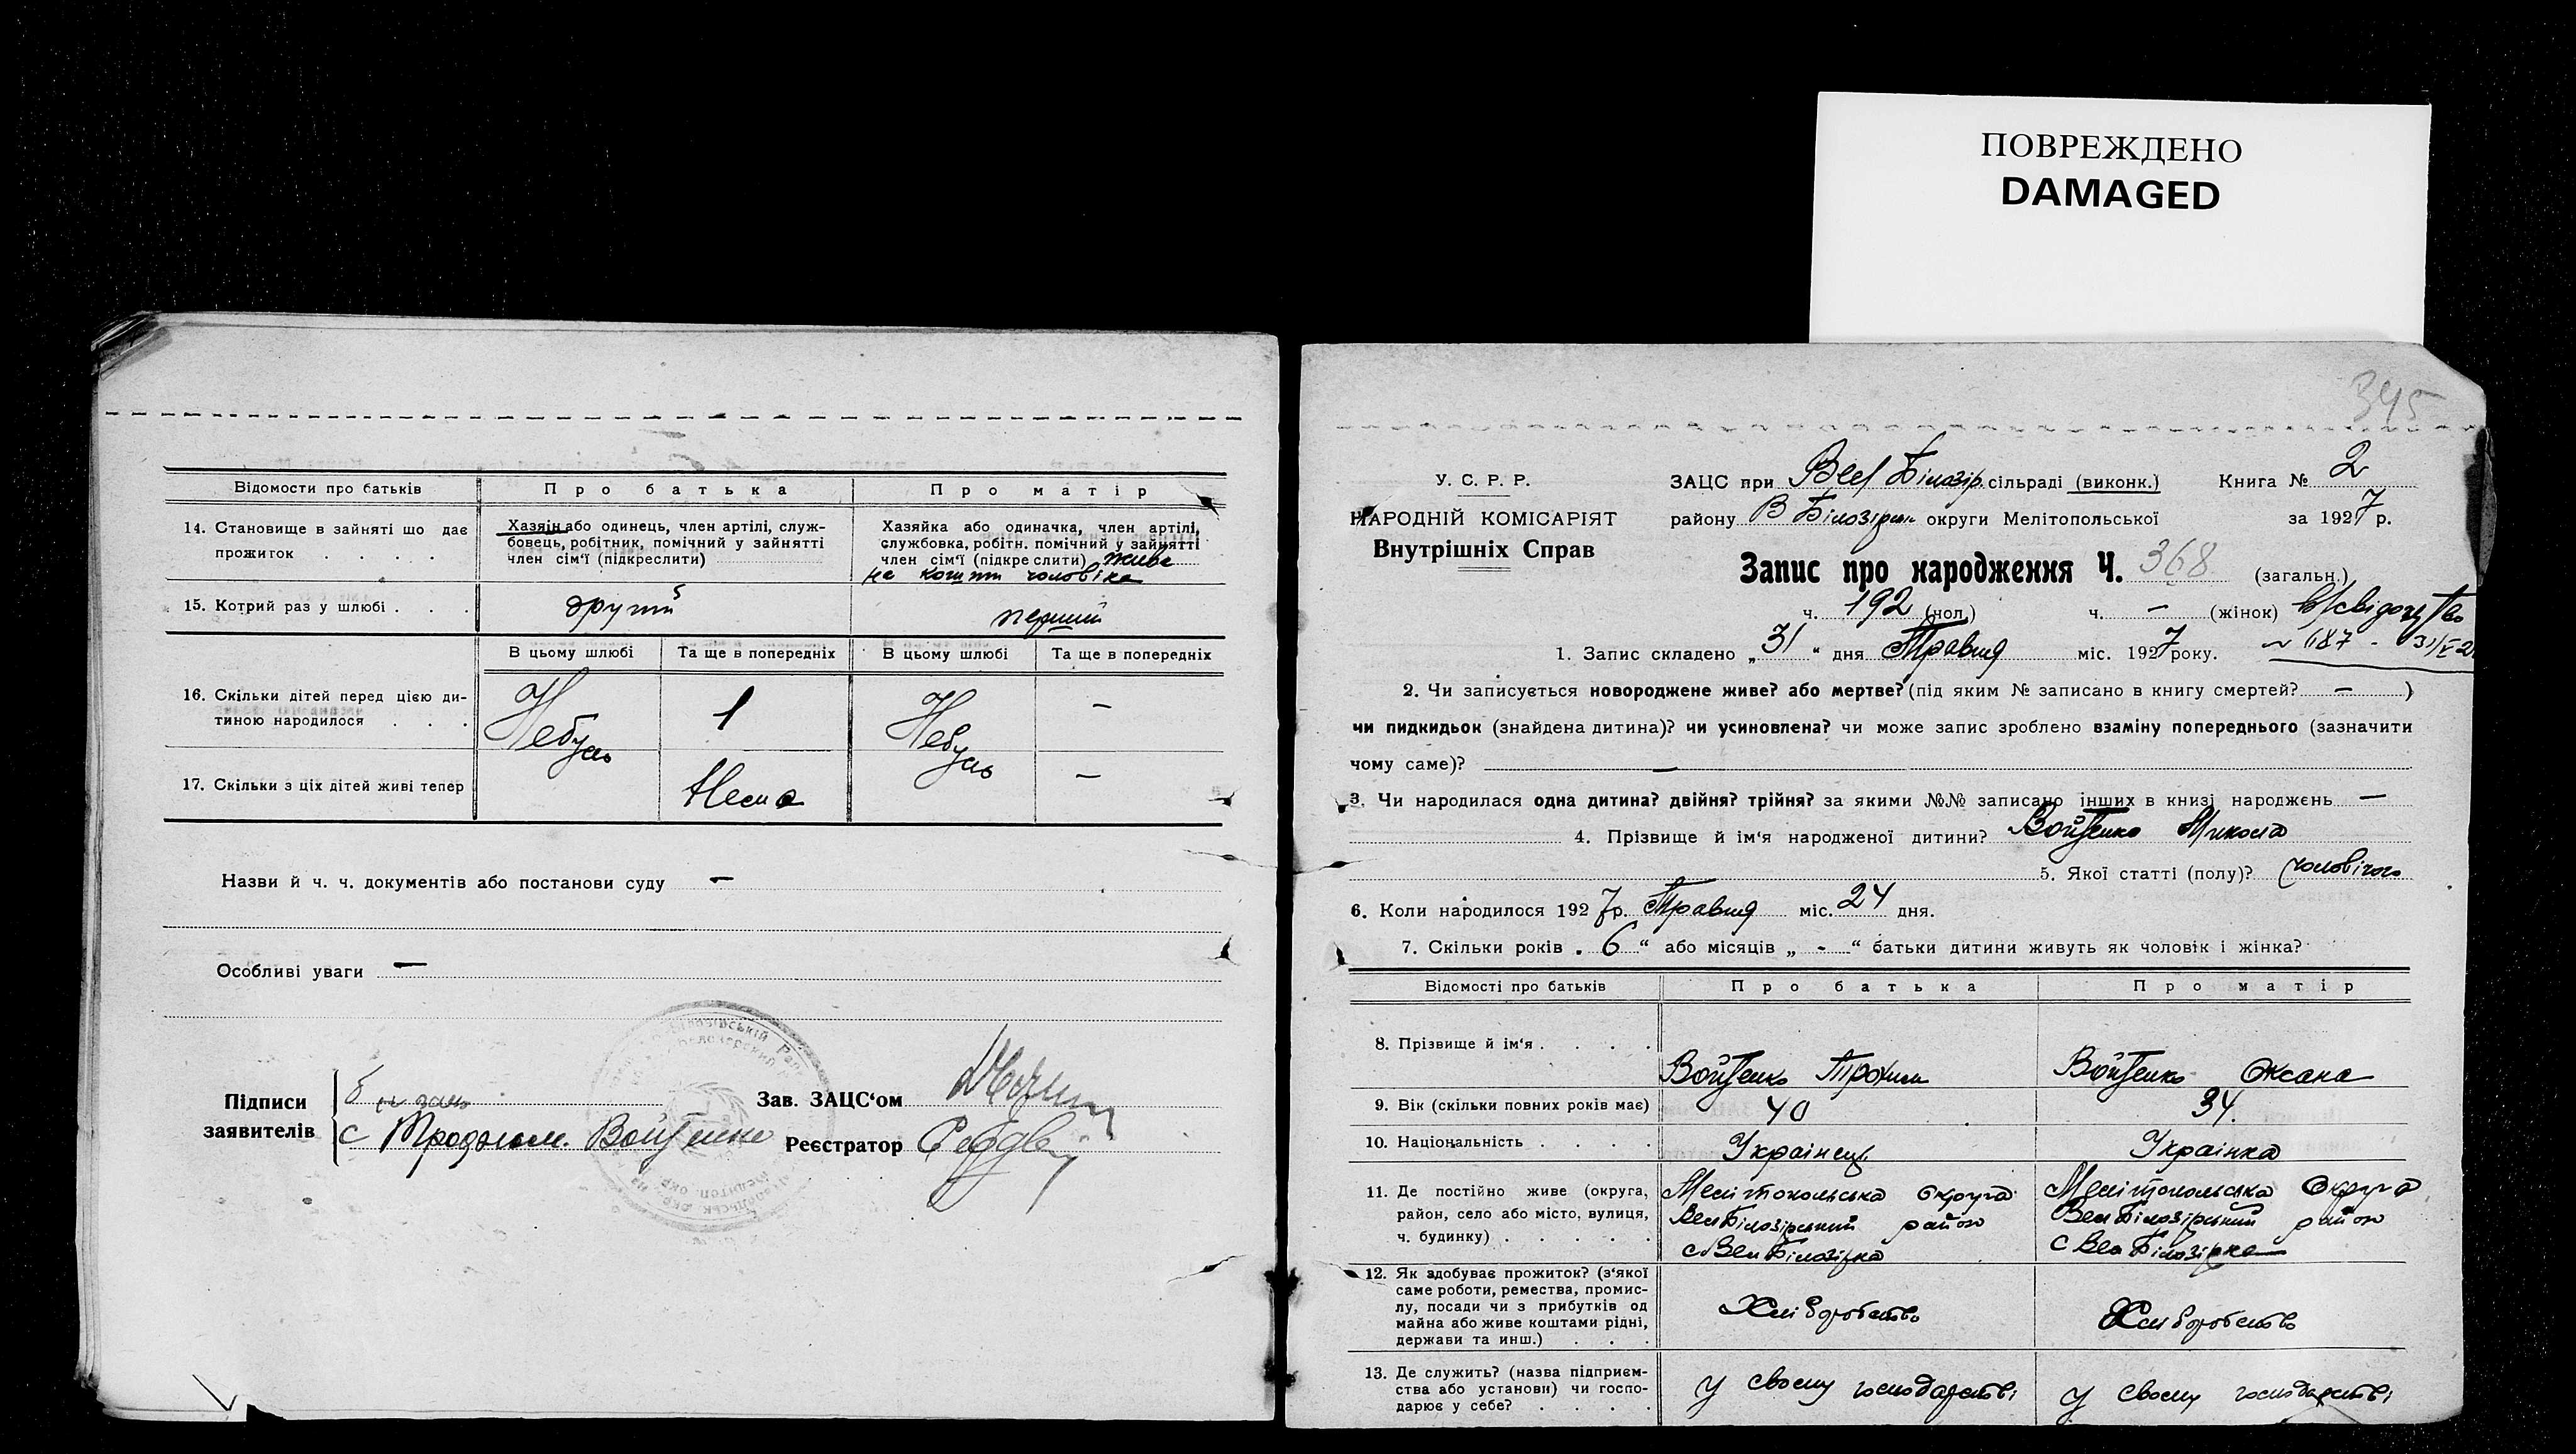 ПОВРЕЖДЕНО
DAMAGED
Відомости про батьків
Про батька
Про матір
14. Становище в зайняті що дає прожиток . . . .
Хазяїн або одинець, член артілі, служ-
бовець, робітник, помічний у зайнятті
член сім‘ї (підкреслити)
Хазяйка або одиначка, член артілі,
службовка, робітн. помічний у зайнятті
член сім‘ї (підкреслити) живе
на кошти чоловіка
15. Котрий раз у шлюбі . . .
другий
перший
В цьому шлюбі
Та ще в попередніх
В цьому шлюбі
Та ще в попередніх
16. Скільки дітей перед цією ди-
тиною народилося . . .
Небуло
1
Небуло
–
17. Скільки з ціх дітей живі тепер
Нема
–
Назви й ч. ч. документів або постанови суду –
Особливі уваги –
Підписи
заявителів
Войтенко
Зав. ЗАЦС‘ом
Реєстратор
345
У. С. Р. Р.
НАРОДНІЙ КОМІСАРІЯТ
Внутрішніх Справ
ЗАЦС при Вел Білозір. сільраді (виконк.) Книга № 2
району В Білозірськ округи Мелітопольської за 1927 р.
Запис про народження Ч. 368 (загальн.)
ч. 192 (чол.) ч. – (жінок)
1. Запис складено „31“ дня Травня міс. 1927 року.
2. Чи записується новороджене живе? або мертве? (під яким № записано в книгу смертей? – )
чи пидкидьок (знайдена дитина)? чи усиновлена? чи може запис зроблено взаміну попереднього (зазначити
чому саме)? –
3. Чи народилася одна дитина? двійня? трійня? за якими №№ записано інших в книзі народжень –
4. Прізвище й ім‘я народженої дитини? Войтенко Микола
5. Якої статті (полу)? чоловічої
6. Коли народилося 1927 р. Травня міс. 24 дня.
7. Скільки років „6“ або місяців „-“ батьки дитини живуть як чоловік і жінка?
Відомості про батьків
Про батька
Про матір
8. Прізвище й ім‘я . . . .
Войтенко Трохим
Войтенко Оксана
9. Вік (скільки повних років має)
40
34.
10. Національність . . . .
Українец
Українка
11. Де постійно живе (округа,
район, село або місто, вулиця,
ч. будинку) . . . . .
Мелітопольська округа
Вел Білозірський район
с Вел Білозірка
Мелітопольська Округа
Вел Білозірський район
с Вел Білозірка
12. Як здобуває прожиток? (з‘якої
саме роботи, ремества, промис-
лу, посади чи з прибутків од
майна або живе коштами рідні,
держави та инш.) . . .
Хліборобство
Хліборобство
13. Де служить? (назва підприєм-
ства або установи) чи госпо-
дарює у себе? . . . .
у своєму господарстві
у своєму господарстві